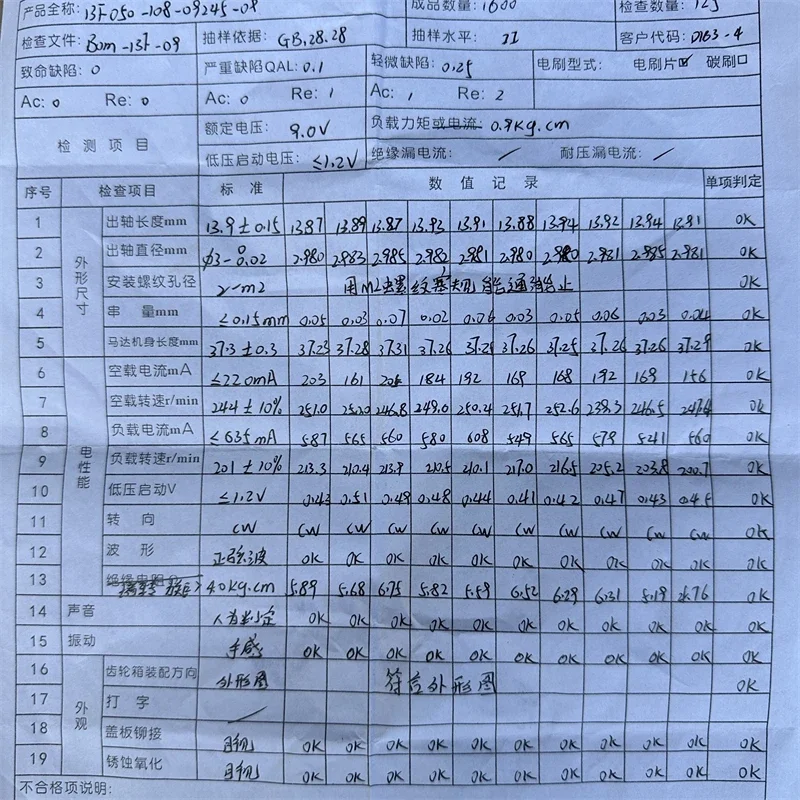 产品全称: 13F-050-108-09245-08 成品数量: 1600 检查数量: 125
检查文件: Bom-13F-09 抽样依据: GB.28.28 抽样水平: II 客户代码: D163-4
致命缺陷: 0 严重缺陷QAL: 0.1 轻微缺陷: 0.25 电刷型式: 电刷片☑ 碳刷□
Ac: 0 Re: 0 Ac: 0 Re: 1 Ac: 1 Re: 2
检测项目 额定电压: 9.0V 负载力矩或电流: 0.9kg.cm
低压启动电压: ≤1.2V 绝缘漏电流: / 耐压漏电流: /
序号 检查项目 标准 数值记录 单项判定
外形尺寸
1 出轴长度mm 13.9±0.15 13.87 13.89 13.87 13.93 13.91 13.88 13.94 13.92 13.94 13.91 OK
2 出轴直径mm φ3-0 0.02 2.980 2.983 2.985 2.982 2.981 2.980 2.980 2.981 2.985 2.981 OK
3 安装螺纹孔径 2-M2 用M2螺纹塞规 通 止 OK
4 串量mm ≤0.15mm 0.05 0.03 0.07 0.02 0.06 0.03 0.05 0.06 0.03 0.04 OK
5 马达机身长度mm 37.3±0.3 37.23 37.28 37.31 37.26 37.29 37.26 37.25 37.26 37.26 37.29 OK
电性能
6 空载电流mA ≤220mA 203 161 184 192 169 168 192 169 156 OK
7 空载转速r/min 244±10% 251.0 252.0 246.8 249.0 250.4 251.7 252.6 239.3 246.5 247.4 OK
8 负载电流mA ≤635mA 587 565 560 580 608 549 565 579 541 560 OK
9 负载转速r/min 201±10% 213.3 210.4 213.9 210.5 210.1 217.0 216.5 205.2 203.8 200.7 OK
10 低压启动V ≤1.2V 0.43 0.51 0.49 0.48 0.44 0.41 0.42 0.47 0.43 0.45 OK
11 转向 CW CW CW CW CW CW CW CW CW CW CW OK
12 波形 正弦波 OK OK OK OK OK OK OK OK OK OK OK
13 40kg.cm 5.89 5.68 6.75 5.82 5.59 6.52 6.29 6.31 5.19 4.76 OK
14 声音 人为判定 OK OK OK OK OK OK OK OK OK OK OK
15 振动 手感 OK OK OK OK OK OK OK OK OK OK OK
外观
16 齿轮箱装配方向 外形图 符合外形图 OK
17 打字 /
18 盖板铆接 目视 OK OK OK OK OK OK OK OK OK OK OK
19 锈蚀氧化 目视 OK OK OK OK OK OK OK OK OK OK OK
不合格项说明: